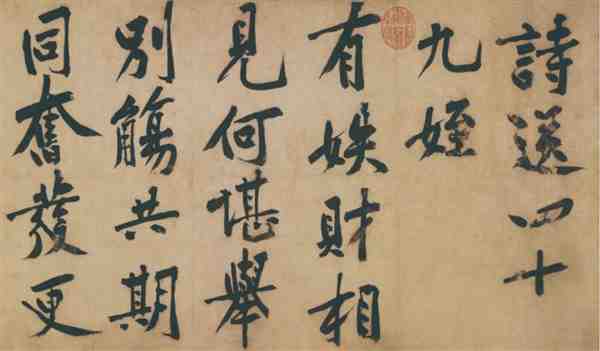 詩送四十
九姪
有娭財相
見何堪舉
別觴共期
同奮發更